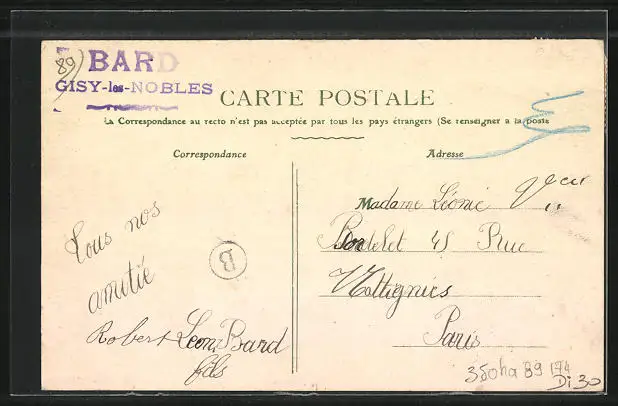 89
BARD
GISY-les-NOBLES
CARTE POSTALE
La Correspondance au recto n'est pas acceptée par tous les pays étrangers (Se renseigner a la poste
Correspondance
Adresse
Tous nos
amitié
Robert Leon Bard
fils
B
Madame Léonie
45 Rue
Paris
350ha 89 174
Di 30